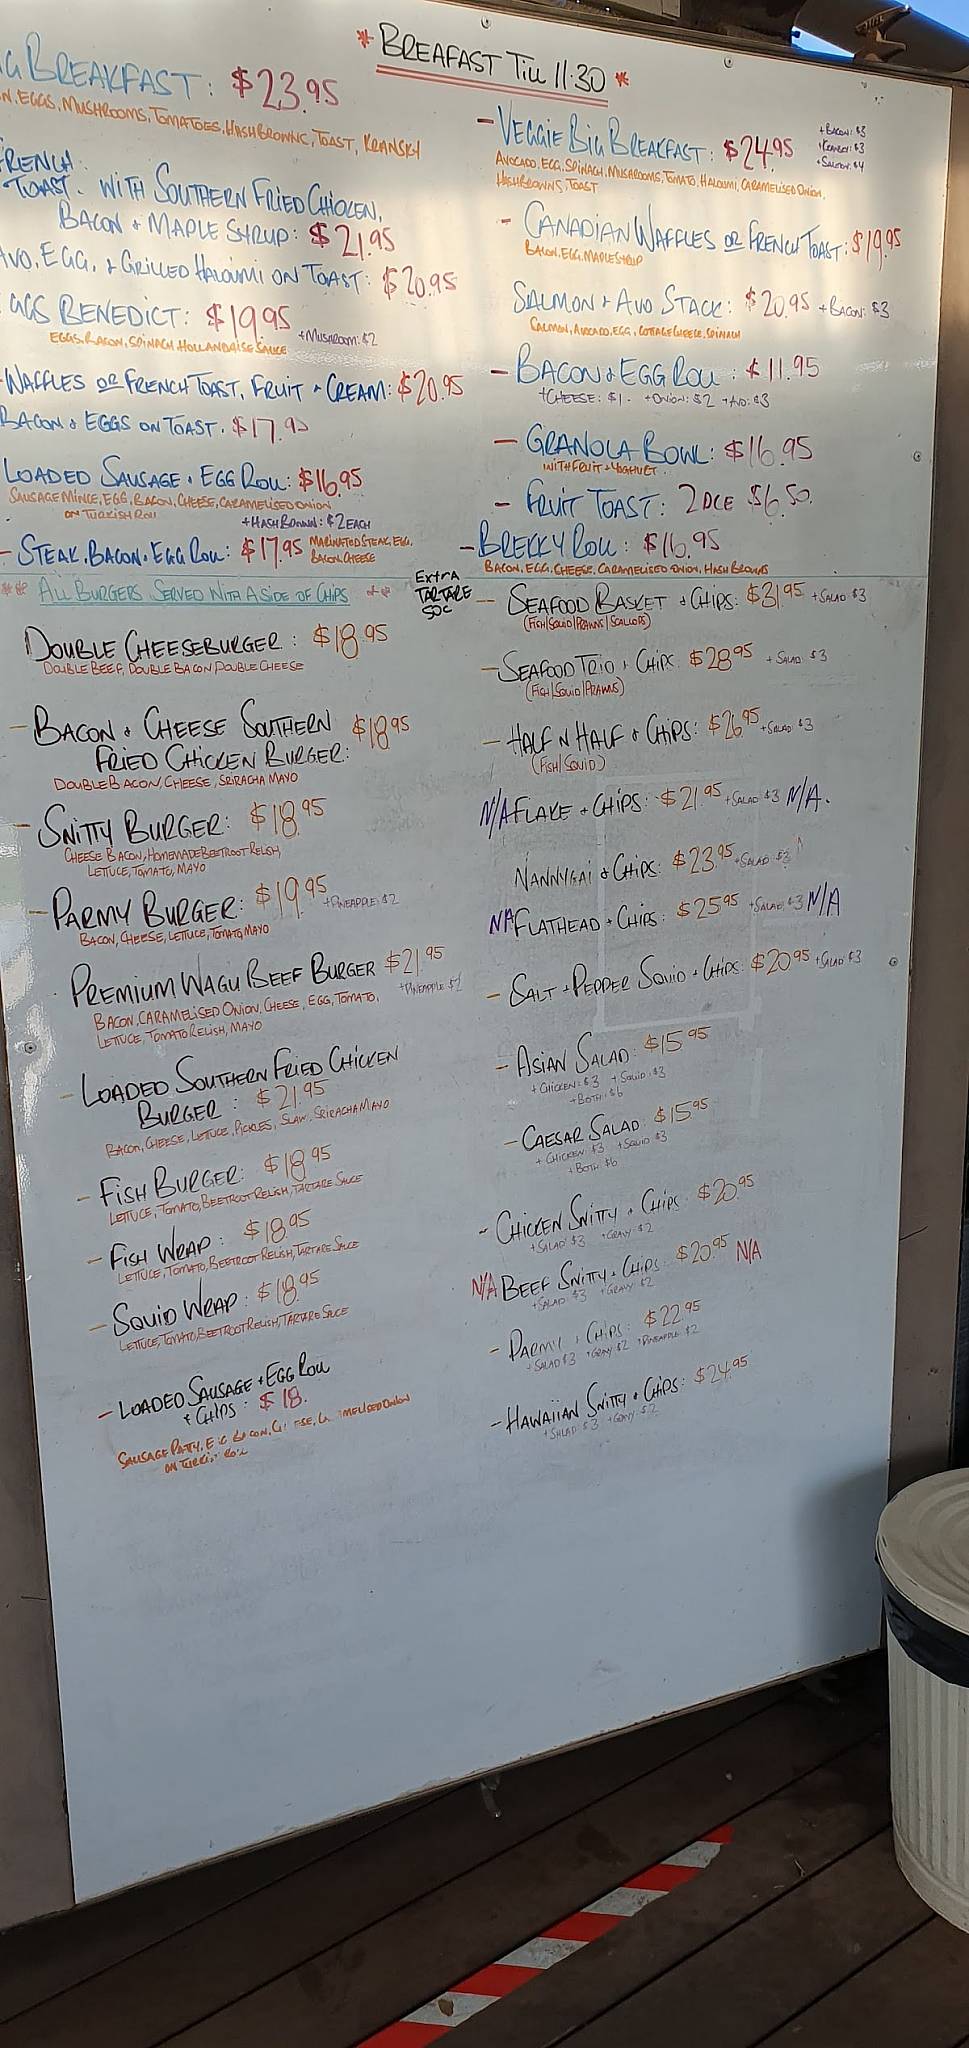 * BREAFAST TILL 11·30 *
BREAKFAST: $23.95
EGGS, MUSHROOMS, TOMATOES, HASHBROWNS, TOAST, KRANSKY
TOAST. WITH SOUTHERN FRIED CHICKEN,
BACON + MAPLE SYRUP: $21.95
AVO, EGG, + GRILLED HALOUMI ON TOAST: $20.95
BENEDICT: $19.95
+MUSHROOM: $2
EGGS, BACON, SPINACH, HOLLANDAISE SAUCE
WAFFLES OR FRENCH TOAST, FRUIT + CREAM: $20.95
BACON + EGGS ON TOAST. $17.95
LOADED SAUSAGE + EGG ROLL: $16.95
SAUSAGE MINCE, EGG, BACON, CHEESE, CARAMELISED ONION
ON TURKISH ROLL
+HASHBROWN: $2 EACH
- STEAK, BACON + EGG ROLL: $17.95 MARINATED STEAK, EGG,
BACON, CHEESE
- VEGGIE BIG BREAKFAST: $24.95
+BACON: $3
+KRANSKY: $3
+SALMON: $4
AVOCADO, EGG, SPINACH, MUSHROOMS, TOMATO, HALOUMI, CARAMELISED ONION,
HASHBROWNS, TOAST
- CANADIAN WAFFLES OR FRENCH TOAST: $19.95
BACON, EGG, MAPLE SYRUP
SALMON + AVO STACK: $20.95 +BACON: $3
SALMON, AVOCADO, EGG, COTTAGE CHEESE, SPINACH
- BACON + EGG ROLL: $11.95
+CHEESE: $1. +ONION: $2 +AVO: $3
- GRANOLA BOWL: $16.95
WITH FRUIT + YOGHURT
- FRUIT TOAST: 2 PCE $6.50.
- BREKKY ROLL: $16.95
BACON, EGG, CHEESE, CARAMELISED ONION, HASH BROWN
** ALL BURGERS SERVED WITH A SIDE OF CHIPS **
DOUBLE CHEESEBURGER: $18.95
DOUBLE BEEF, DOUBLE BACON, DOUBLE CHEESE
- BACON + CHEESE SOUTHERN $18.95
FRIED CHICKEN BURGER:
DOUBLE BACON, CHEESE, SRIRACHA MAYO
- SNITTY BURGER: $18.95
CHEESE, BACON, HOMEMADE BEETROOT RELISH,
LETTUCE, TOMATO, MAYO
- PARMY BURGER: $19.95 +PINEAPPLE: $2
BACON, CHEESE, LETTUCE, TOMATO, MAYO
PREMIUM WAGU BEEF BURGER $21.95
+PINEAPPLE $2
BACON, CARAMELISED ONION, CHEESE, EGG, TOMATO,
LETTUCE, TOMATO RELISH, MAYO
- LOADED SOUTHERN FRIED CHICKEN
BURGER: $21.95
BACON, CHEESE, LETTUCE, PICKLES, SLAW, SRIRACHA MAYO
- FISH BURGER: $18.95
LETTUCE, TOMATO, BEETROOT RELISH, TARTARE SAUCE
- FISH WRAP: $18.95
LETTUCE, TOMATO, BEETROOT RELISH, TARTARE SAUCE
- SQUID WRAP: $18.95
LETTUCE, TOMATO, BEETROOT RELISH, TARTARE SAUCE
- LOADED SAUSAGE + EGG ROLL
+ CHIPS: $18.
SAUSAGE PATTY, EGG, BACON, CHEESE, CARAMELISED ONION
ON TURKISH ROLL
EXTRA
TARTARE
50C
- SEAFOOD BASKET + CHIPS: $31.95 +SALAD: $3
(FISH/SQUID/PRAWNS/SCALLOPS)
- SEAFOOD TRIO + CHIPS: $28.95 +SALAD: $3
(FISH/SQUID/PRAWNS)
- HALF N HALF + CHIPS: $26.95 +SALAD: $3
(FISH/SQUID)
N/A FLAKE + CHIPS: $21.95 +SALAD $3 N/A.
NANNYGAI + CHIPS: $23.95 +SALAD: $3
NA FLATHEAD + CHIPS: $25.95 +SALAD: $3 N/A
- SALT + PEPPER SQUID + CHIPS: $20.95 +SALAD: $3
- ASIAN SALAD: $15.95
+ CHICKEN: $3 + SQUID: $3
+BOTH: $6
- CAESAR SALAD: $15.95
+ CHICKEN: $3 +SQUID: $3
+ BOTH: $6
- CHICKEN SNITTY + CHIPS: $20.95
+SALAD: $3 +GRAVY: $2
N/A BEEF SNITTY + CHIPS: $20.95 N/A
+SALAD: $3 +GRAVY: $2
- PARMY + CHIPS: $22.95
+SALAD $3 +GRAVY $2 +PINEAPPLE $2
- HAWAIIAN SNITTY + CHIPS: $24.95
+SALAD: $3 +GRAVY: $2